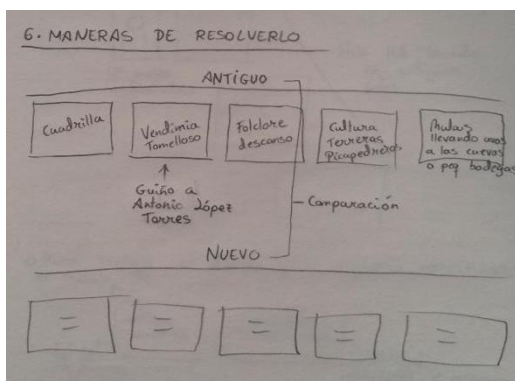 6. MANERAS DE RESOLVERLO
ANTIGUO
Cuadrilla
Vendimia
Tomelloso
Folclore
descanso
Cultura
Terreras
Picapedreros
Mulas
llevando uvas
a las cuevas
o peq bodegas
Guiño a
Antonio López
Torres
Comparación
NUEVO
=
=
=
=
=